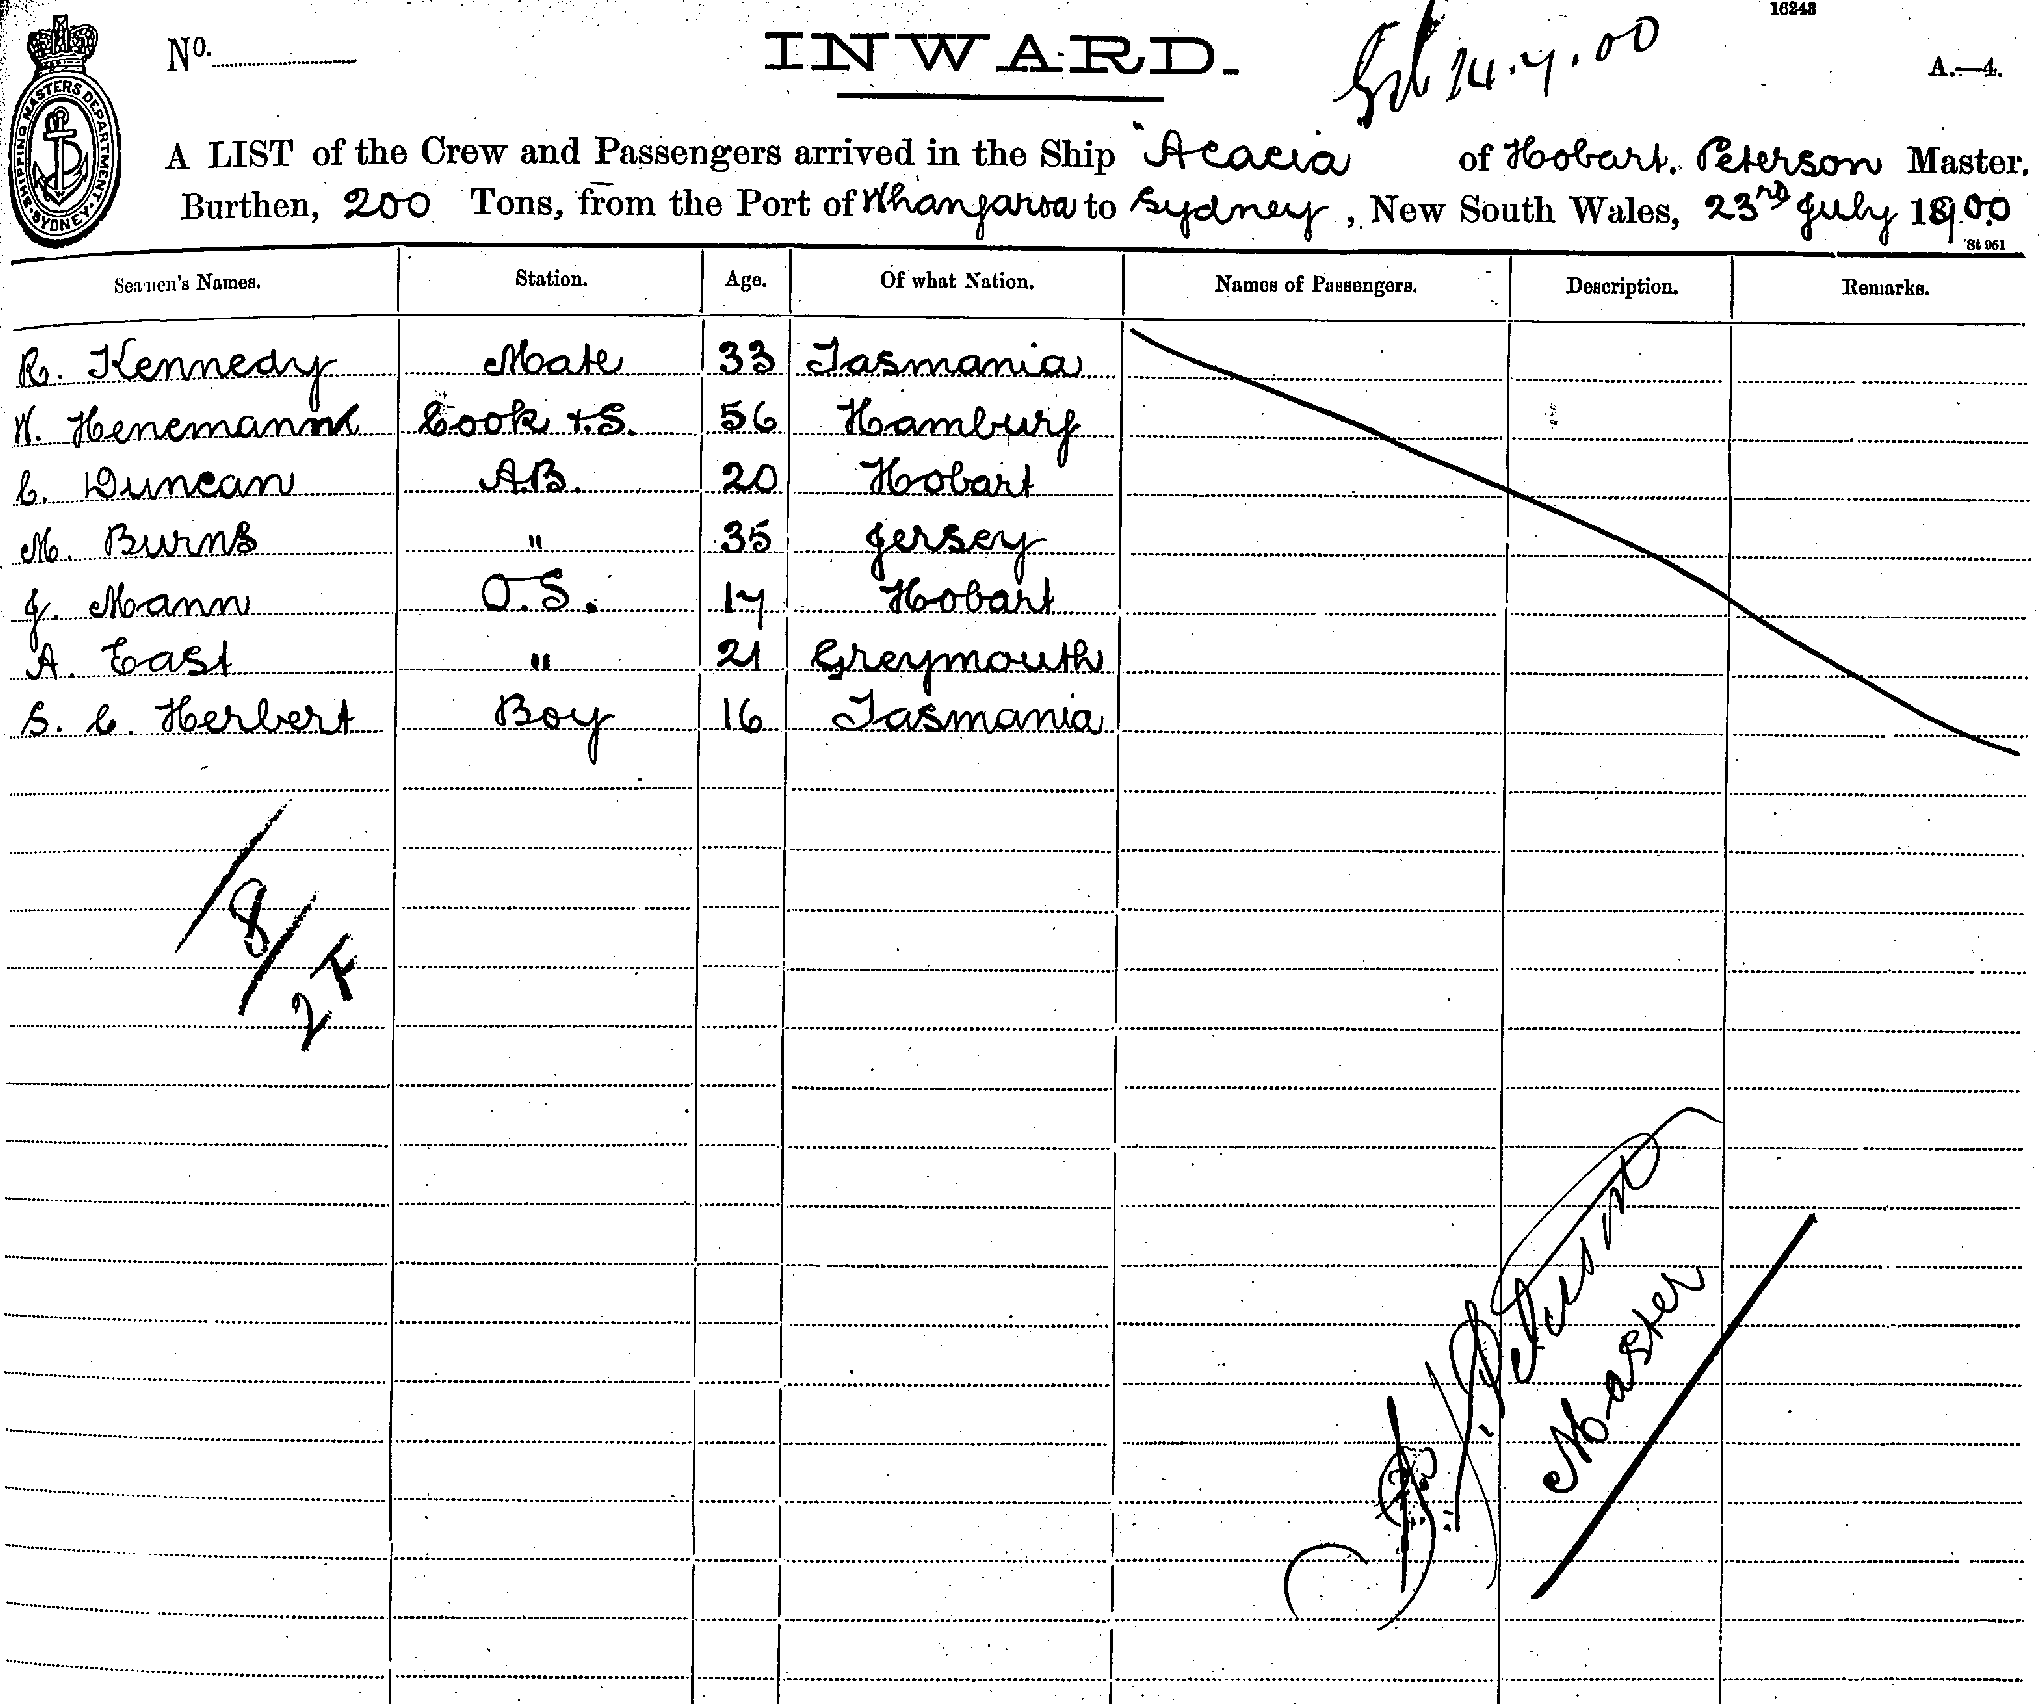 16243
No. INWARD. 24.7.00 A.—4.
SHIPPING MASTERS DEPARTMENT. SYDNEY.
A LIST of the Crew and Passengers arrived in the Ship "Acacia of Hobart. Peterson Master.
Burthen, 200 Tons, from the Port of Whangaroa to Sydney, New South Wales, 23rd July 1900
St 961
Seamen's Names. Station. Age. Of what Nation. Names of Passengers. Description. Remarks.
R. Kennedy Mate 33 Tasmania
W. Henemann Cook & S. 56 Hamburg
C. Duncan A.B. 20 Hobart
M. Burns " 35 Jersey
J. Mann O.S. 17 Hobart
A. East " 21 Greymouth
S. C. Herbert Boy 16 Tasmania
8
2 F
Peterson
Master